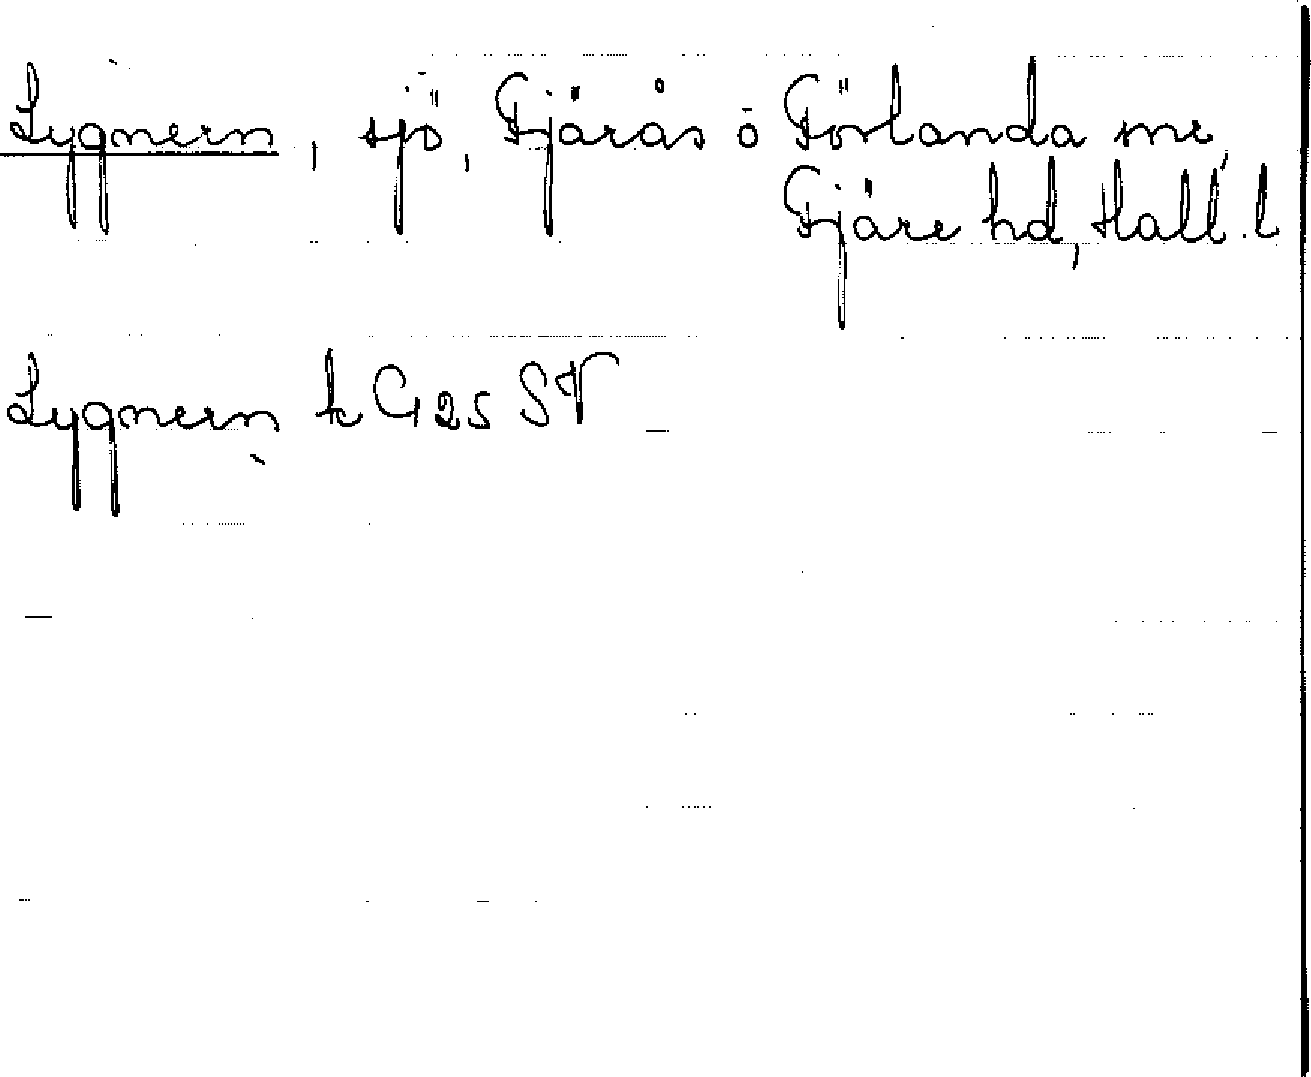 Lygnern, sjö, Fjärås o Förlanda snr,
Fjäre hd, Hall. l
Lygnern k G 25 SV